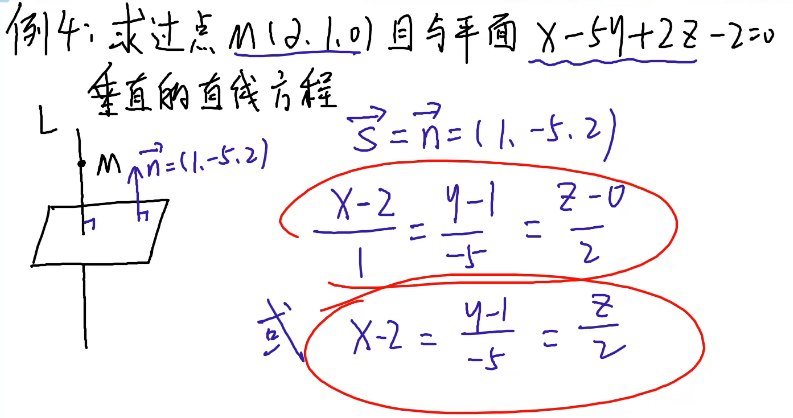 例4: 求过点 M(2.1.0)且与平面 x-5y+2z-2=0
垂直的直线方程
L
M
n⃗=(1.-5.2)
s⃗=n⃗=(1.-5.2)
(x-2)/1 = (y-1)/-5 = (z-0)/2
或 x-2 = (y-1)/-5 = z/2